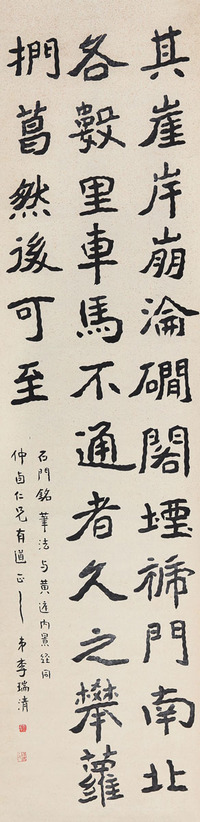 其崖岸崩淪磵閣堙褫門南北
各數里車馬不通者久之攀蘿
捫葛然後可至
石門銘筆法与黃庭內景經同
仲卣仁兄有道正之 弟李瑞清